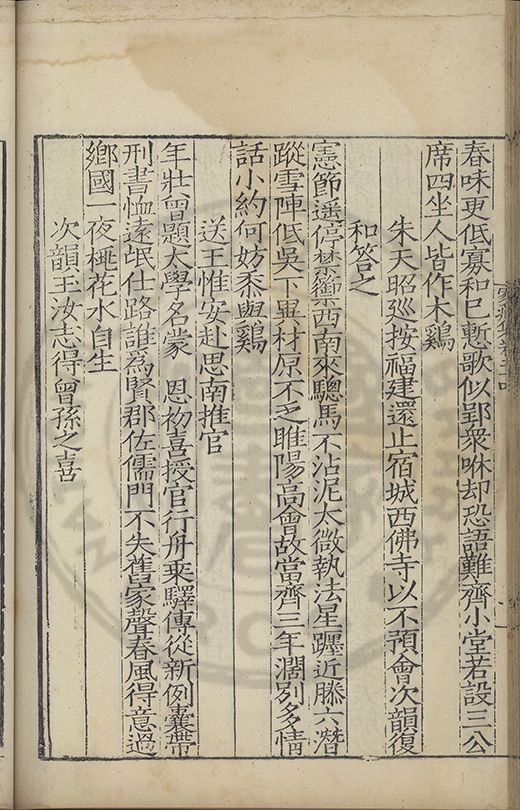 春味更低寡和已慙歌似郢衆咻却恐語難齊小堂若設三公
席四坐人皆作木鷄
朱天昭廵按福建還止宿城西佛寺以不預會次韻復
和答之
憲節遥停禁禦西南來驄馬不沾泥太微執法星躔近滕六潛
蹤雪陣低吳下異材原不乏睢陽高會故當齊三年濶別多情
話小約何妨黍與鷄
送王惟安赴思南推官
年壯曾題太學名蒙 恩初喜授官行舟乘驛傳從新例囊帶
刑書恤逺氓仕路誰為賢郡佐儒門不失舊家聲春風得意過
鄉國一夜桃花水自生
次韻王汝志得曾孫之喜